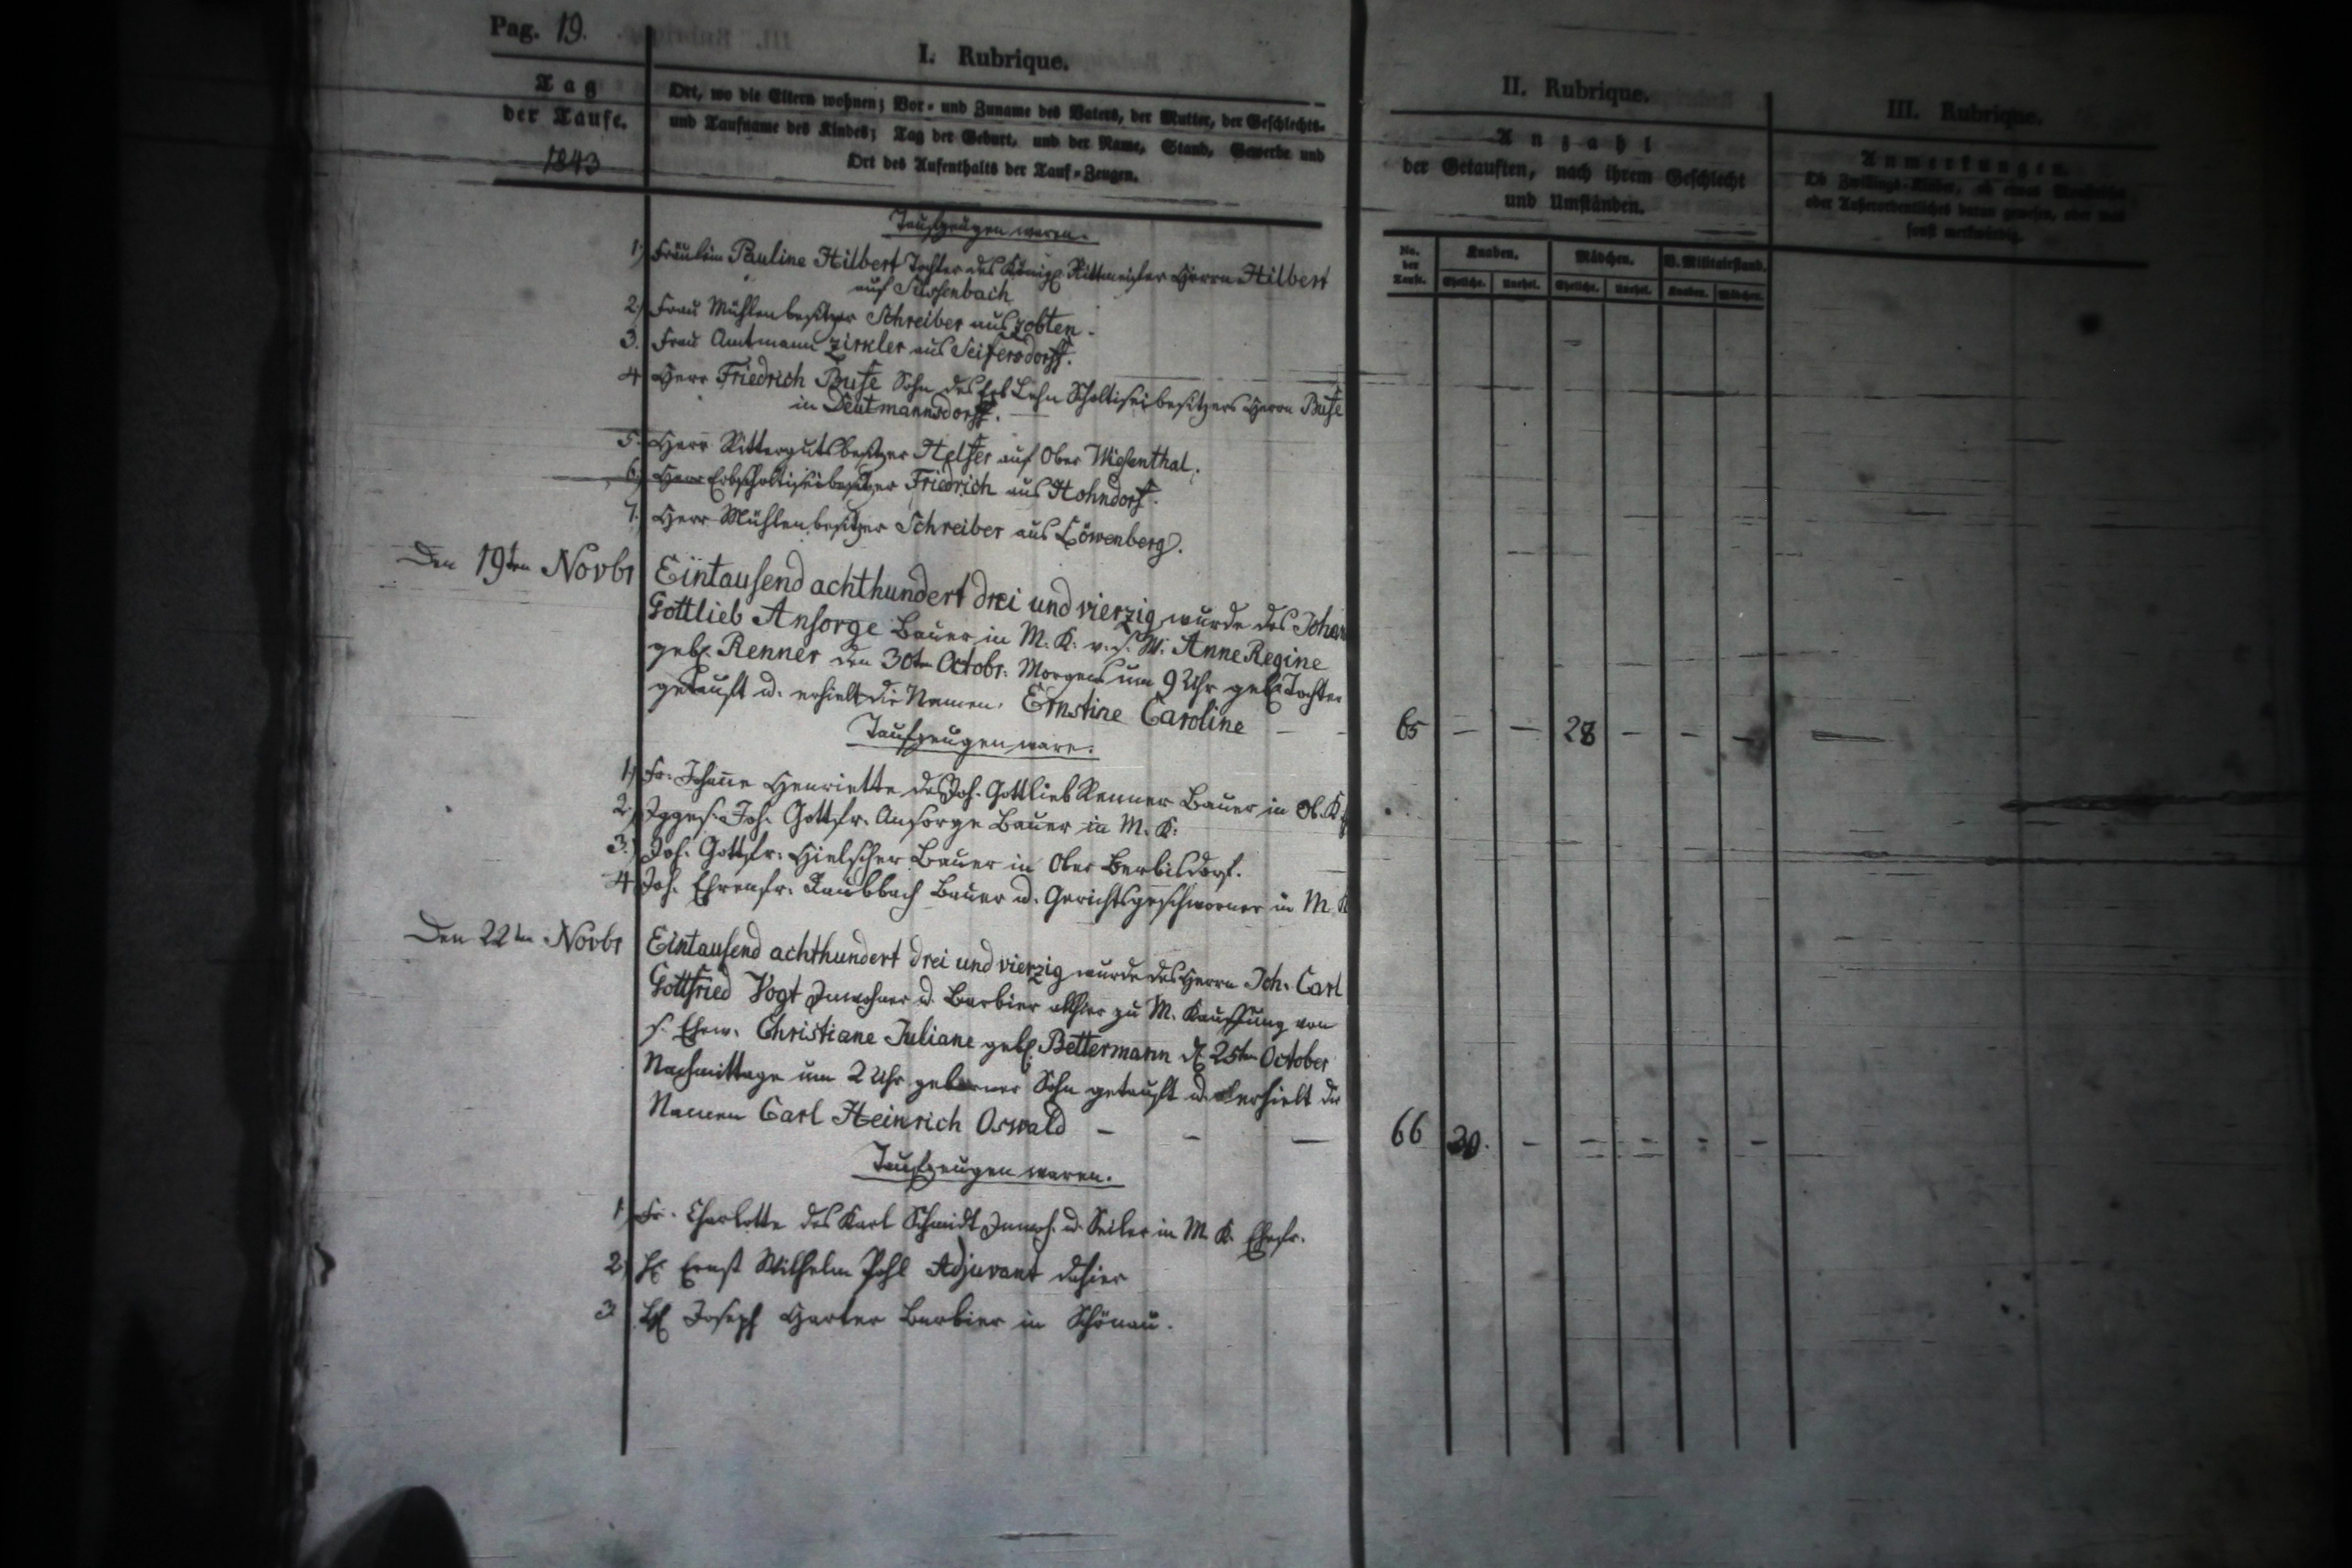 Pag. 19.
I. Rubrique.
Tag
der Taufe.
1843
Ort, wo die Eltern wohnen; Vor- und Zuname des Vaters, der Mutter, der Geschlechts-
und Taufname des Kindes; Tag der Geburt, und der Name, Stand, Gewerbe und
Ort des Aufenthalts der Tauf-Zeugen.
II. Rubrique.
Anzahl
der Getauften, nach ihrem Geschlecht
und Umständen.
No. der Taufe.
Knaben.
Mädchen.
V. Militairstand.
Eheliche.
Unehel.
Eheliche.
Unehel.
Knaben.
Mädchen.
III. Rubrique.
Anmerkungen.
Ob Zwillings-Kinder, ob etwas
oder Außerordentliches daran gewesen, oder was
sonst merkwürdig.
Taufzeugen waren.
1.) Fräulein Pauline Hilbert Tochter des Königl. Rittmeister Herrn Hilbert
auf
2.) Frau Mühlenbesitzer Schreiber aus Zobten.
3. Frau Amtmann Zirkler aus Seifersdorff.
4 Herr Friedrich Buse Sohn des Erb Lehn Scholtiseibesitzers Herrn Buse
in Deutmannsdorff.
5. Herr Rittergutsbesitzer Helfer auf Ober Wiesenthal.
6.) Herr Erbscholtiseibesitzer Friedrich aus Hohndorf.
7.) Herr Mühlenbesitzer Schreiber aus Löwenberg.
Den 19ten Novbr
Eintausend achthundert drei und vierzig wurde des Johan
Gottlieb Ansorge Bauer in M. K. v. s. W. Anne Regine
geb. Renner den 30ten Octobr. Morgens um 9 Uhr geb. Tochter
getauft u. erhielt die Namen. Ernstine Caroline - -
65 - - 28 - - -
Taufzeugen ware.
1.) Fr. Johañe Henriette des Joh. Gottlieb Renner Bauer in Ob. K.
2.) Jgges. Joh. Gottfr. Ansorge Bauer in M. K.
3.) Joh. Gottfr. Hielscher Bauer in Ober Berbisdorf.
4 Joh. Ehrenfr. Raubbach Bauer u. Gerichtsgeschworner in M. K
Den 22ten Novbr
Eintausend achthundert drei und vierzig wurde des Herrn Joh. Carl
Gottfried Vogt Inwohner u. Barbier allhier zu M. Kauffung von
s. Ehew. Christiane Juliane geb. Bettermann d. 25ten October
Nachmittage um 2 Uhr geborner Sohn getauft u. erhielt die
Namen Carl Heinrich Oswald - - -
66 30. - - - - -
Taufzeugen waren.
1.) Fr. Charlotte des Karl Schmidt Inwoh. u. Seiler in M. K. Ehefr.
2.) H. Ernst Wilhelm Pohl Adjuvant dahier
3. H. Joseph Harter Barbier in Schönau.